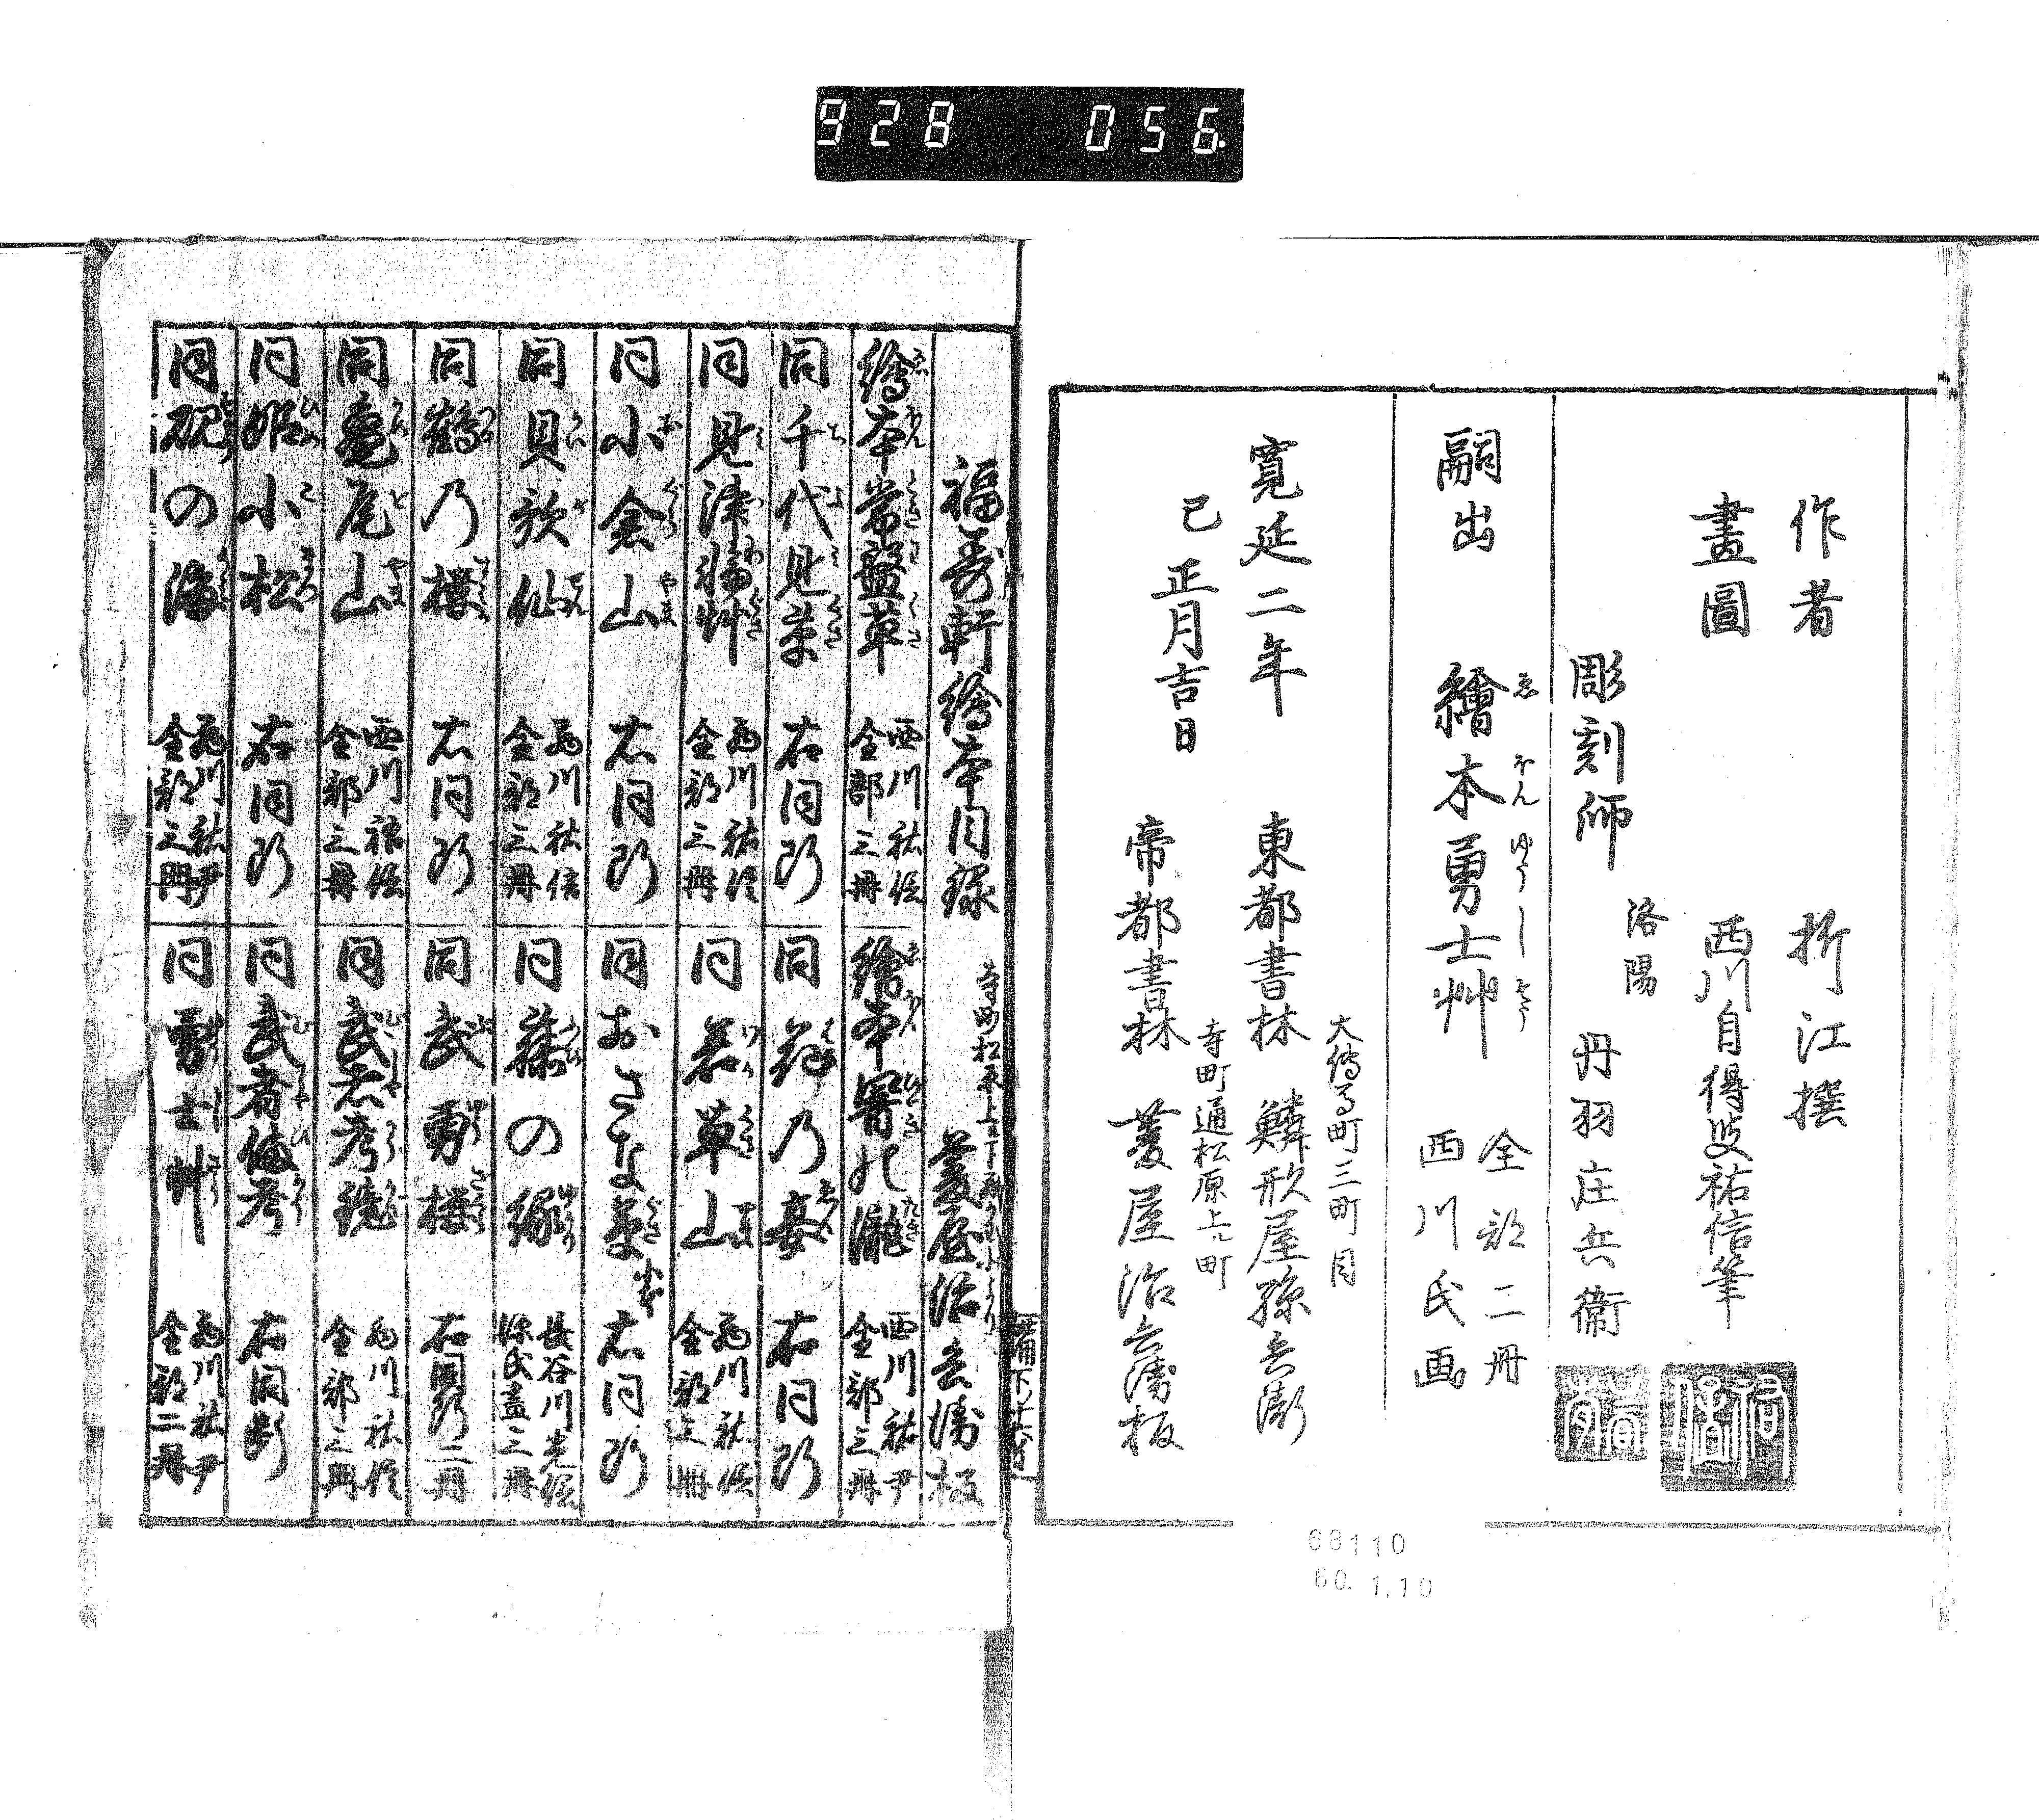 928 056
作者 折江撰
畫圖 西川自得叟祐信筆
彫刻師 洛陽 丹羽庄兵衛
嗣出 繪本勇士艸 全部二冊 西川氏画
ゑほんゆうしさう
寛延二年
己 正月吉日
大傳馬町三町目
東都書林 鱗形屋孫兵衛
寺町通松原上ル町
帝都書林 菱屋治兵衛板
福壽軒繪本目録 菱屋治兵衛板
繪本常盤草 西川祐信 全部三冊
同千代見草 右同断
同見津輪艸 西川祐信 全部三冊
同小倉山 右同断
同貝歌仙 西川祐信 全部三冊
同鶴乃棲 右同断
同亀尾山 西川祐信 全部三冊
同姫小松 右同断
同硯の海 西川祐尹 全部三冊
繪本 西川祐尹 全部三冊
同 右同断
同若草山 西川祐信 全部三冊
同おさな 右同断
同藤の縁 長谷川光信 全三冊
同武勇櫻 右同断二冊
同武者考鏡 西川祐信 全部三冊
同武者備考 右同断
同勇士艸 西川祐尹 全部二冊
68110
60.1.10